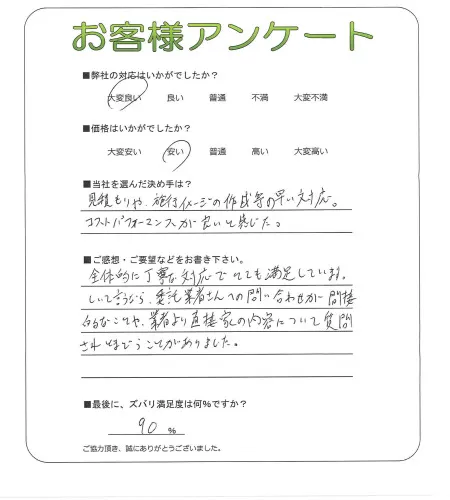 お客様アンケート
■弊社の対応はいかがでしたか?
大変良い 良い 普通 不満 大変不満
■価格はいかがでしたか?
大変安い 安い 普通 高い 大変高い
■当社を選んだ決め手は?
見積もりや、施行イメージの作成等の早い対応。
コストパフォーマンスが良いと感じた。
■ご感想・ご要望などをお書き下さい。
全体的に丁寧な対応でとても満足しています。
しいて言うなら、委託業者さんへの問い合わせが間接
的なことや、業者より直接家の内容について質問
されとまどうことがありました。
■最後に、ズバリ満足度は何%ですか?
90 %
ご協力頂き、誠にありがとうございました。